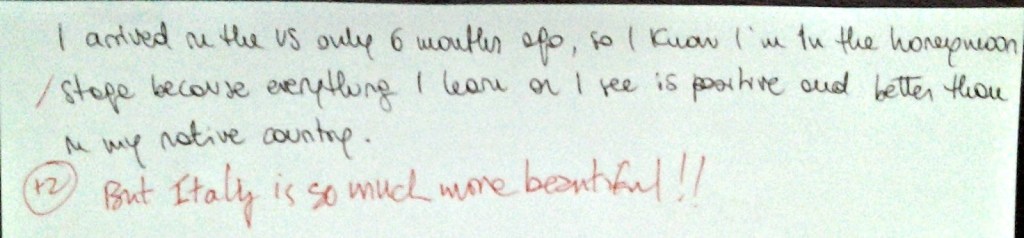 I arrived in the US only 6 months ago, so I know I'm in the honeymoon
/ stage because everything I learn or I see is positive and better than
in my native country.
+2 But Italy is so much more beautiful!!